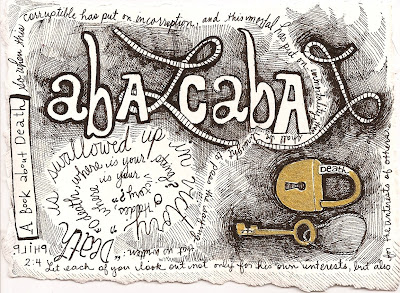 So when this corruptible has put on incorruption, and this mortal has put on immortality, then shall be brought to pass the saying that is written:
abaLcabaL
Death is swallowed up in victory.
O death, where is your sting?
O Hades where is your victory?
A Book about Death
Death
PHIL
2:4
Let each of you look out not only for his own interests, but also for the interests of others